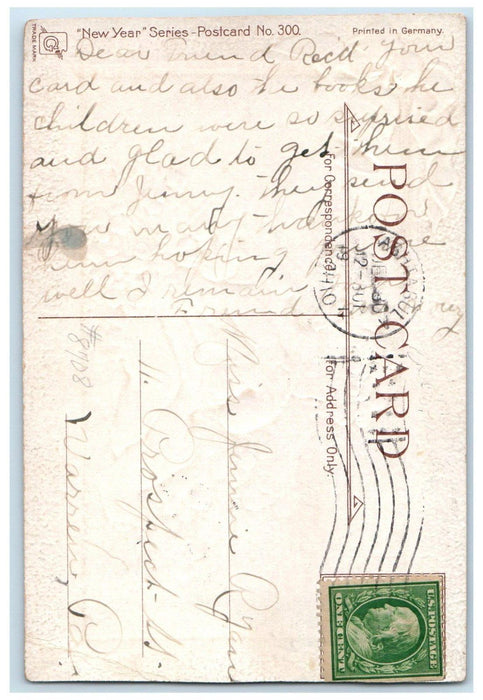 TRADE MARK
G
"New Year" Series - Postcard No. 300.
Printed in Germany.
Dear Friend Rec'd your
card and also the books the
children were so surprised
and glad to get them
from Jenny. they send
you many thanks for
them hoping you are
well I remain
Friend
POST CARD
For Correspondence
For Address Only.
OHIO
#8408
Miss Jennie Ryan
11. Prospect St.
Warren, Pa
U.S. POSTAGE
ONE CENT